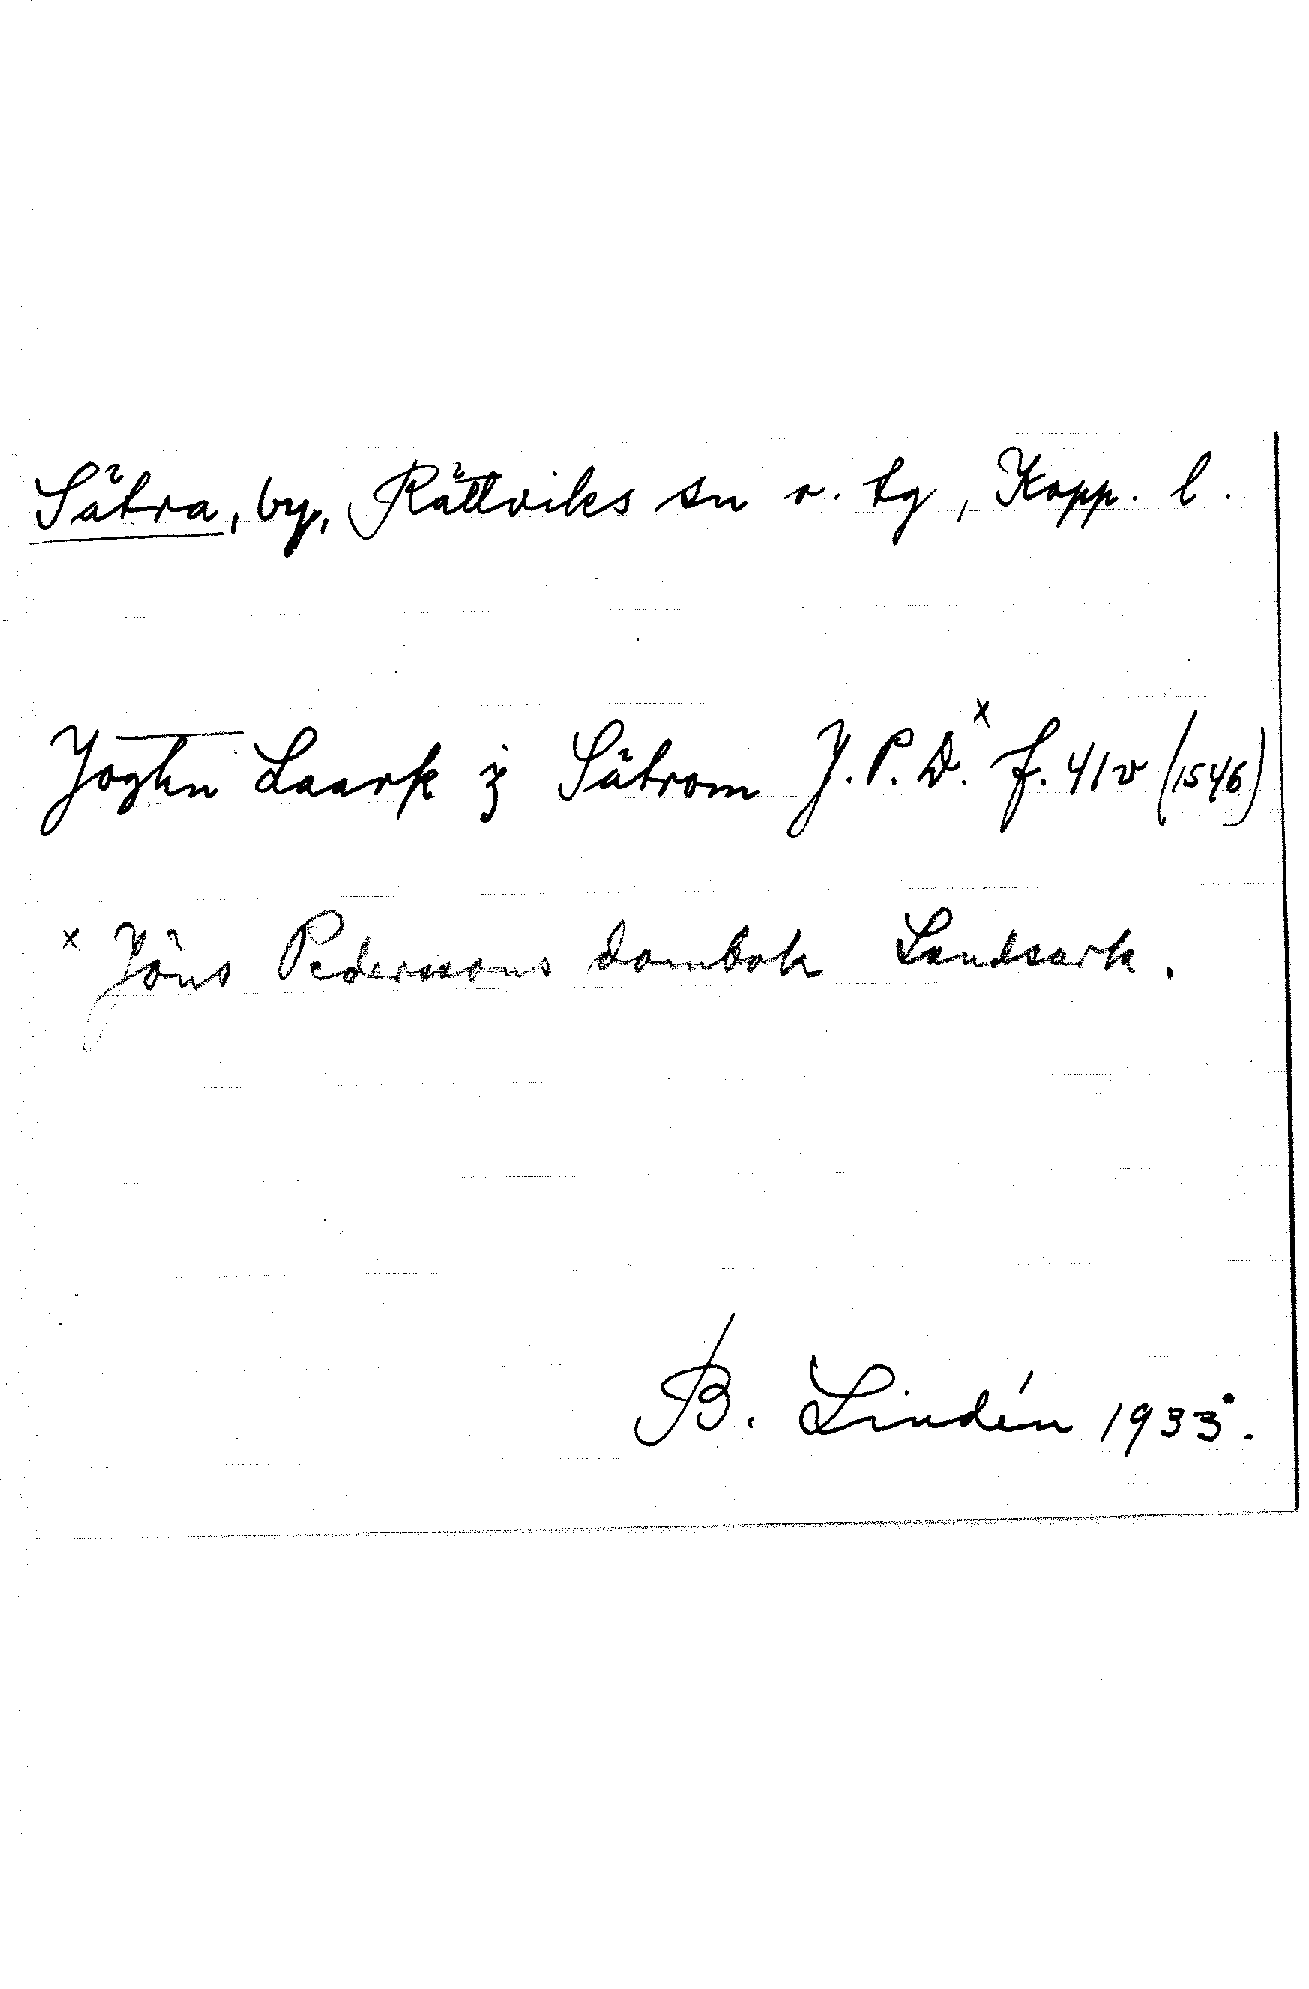 Sätra, by, Rättviks sn o. tg, Kopp. l.
Joghn Laark j Sätrom J. P. D.x f. 41v (1546)
x Jöns Pederssons dombok Landsark.
B. Lindén 1933.